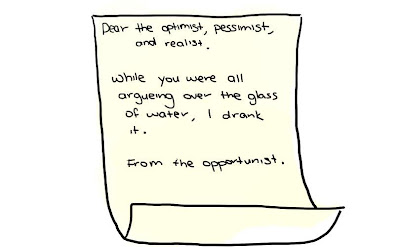 Dear the optimist, pessimist,
and realist.
While you were all
argueing over the glass
of water, I drank
it.
From the opportunist.